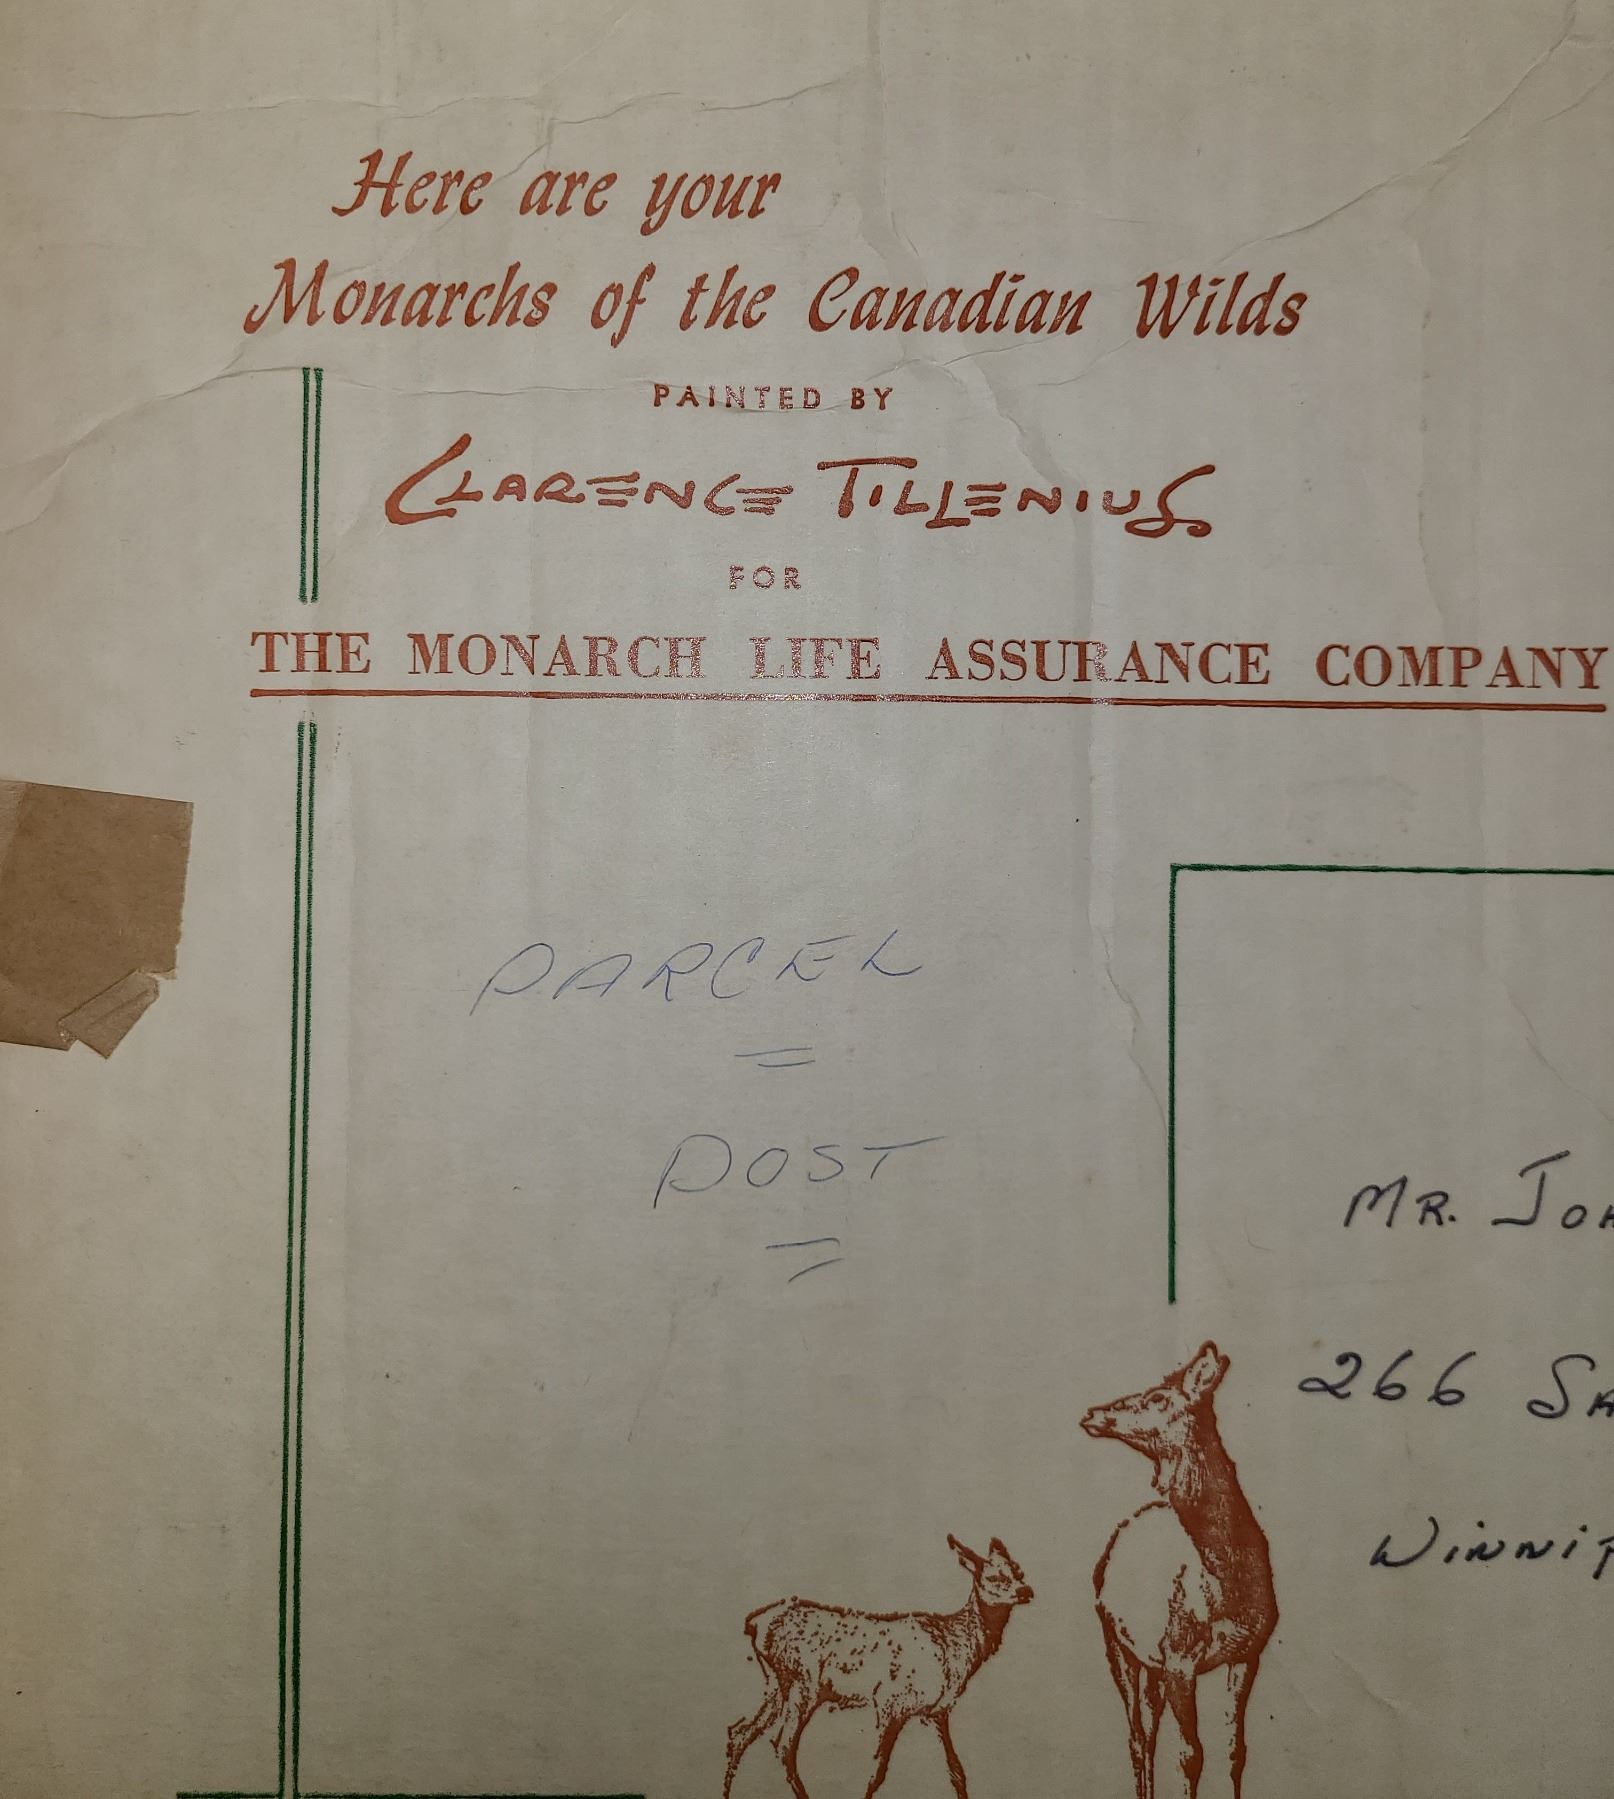 Here are your
Monarchs of the Canadian Wilds
PAINTED BY
CLARENCE TILLENIUS
FOR
THE MONARCH LIFE ASSURANCE COMPANY
PARCEL
POST
MR. JOH
266 SA
WINNIP